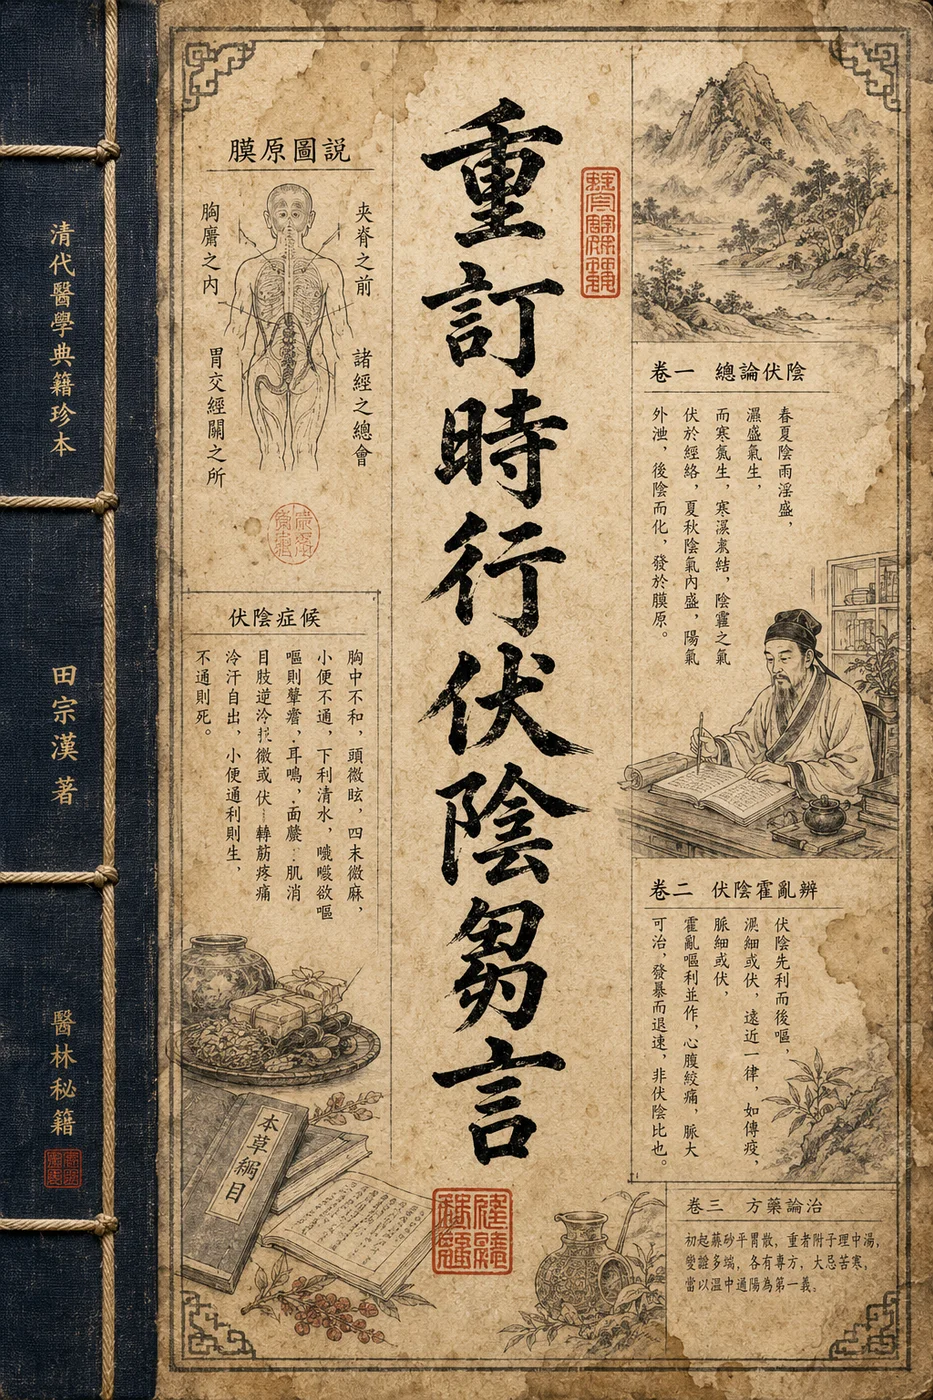 清代醫學典籍珍本
田宗漢 著
醫林秘籍
重訂時行伏陰芻言
膜原圖説
夾脊之前
胸膺之內
諸經之總會
胃交經關之所
卷一 總論伏陰
春夏陰雨淫盛，
濕盛氣生，
而寒氣生，寒濕氣結，陰霾之氣
伏於經絡，夏秋陰氣內盛，陽氣
外泄，後陰而化，發於膜原。
伏陰症候
胸中不和，頭微眩，四末微麻，
小便不通，下利清水，噦噦欲嘔
嘔則聲嗇，耳鳴，面䐜 肌消
目肢逆冷 微或伏 轉筋疼痛
冷汗自出，小便通利則生，
不通則死。
卷二 伏陰霍亂辨
伏陰先利而後嘔，
細或伏，遠近一律，如傳疫，
脈細或伏，
霍亂嘔利並作，心腹絞痛，脈大
可治，發暴而退速，非伏陰比也。
卷三 方藥論治
初起蘇砂平胃散，重者附子理中湯，
變證多端，各有專方，大忌苦寒，
當以溫中通陽為第一義。
本草綱目